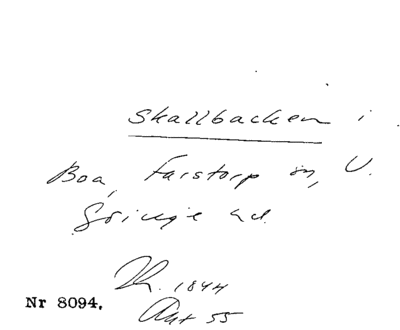 Skallbacken i
Boa, Farstorp sn, V.
Göinge hd.
1844
Akt 55
Nr 8094.